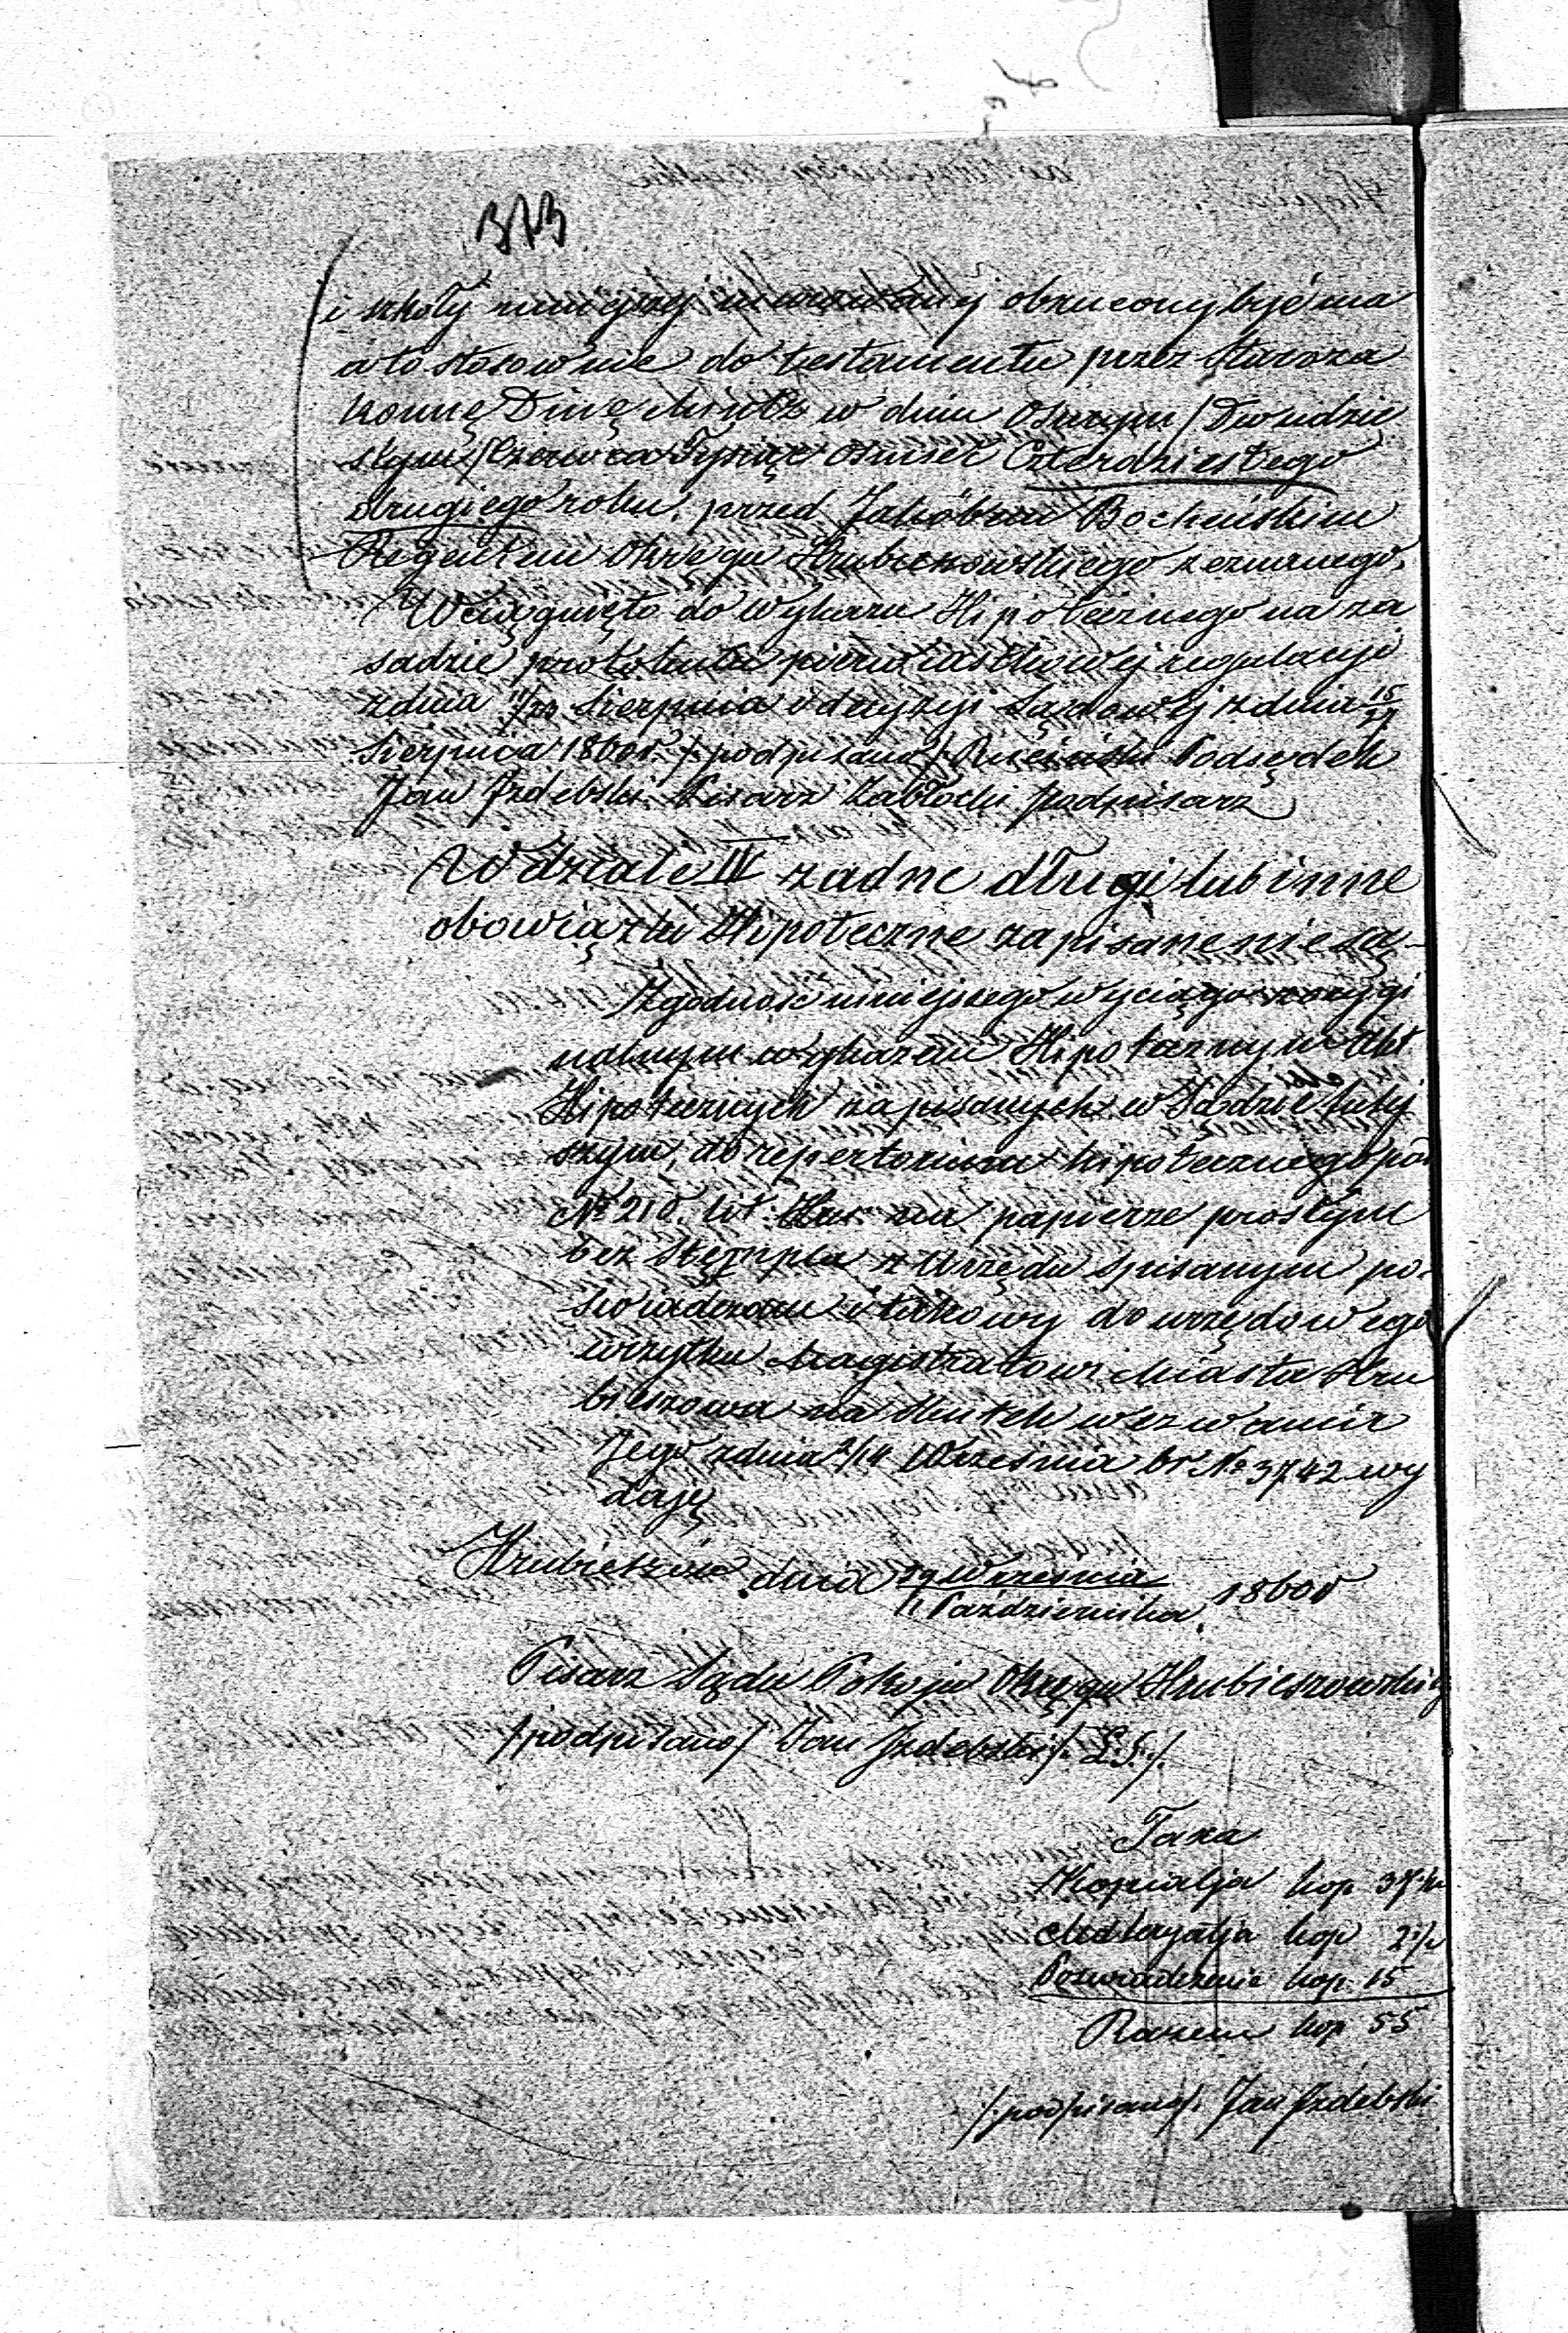 373
i szkoły mniejszej murowanej obrucony być ma
a to stosownie do testamentu przez Staroza
konnę Dinę Mintz w dniu Osmym/Dwudzie
stym/Czerwca Tysiąc Osmset Czterdziestego
drugiego roku, przed Jakóbem Bocheńskim
Regentem Okręgu Hrubieszowskiego zeznanego,
Wciągnięto do wykazu Hipotecznego na za
sadzie protokułu pierwiastkowej regulacyi
z dnia 11/23 Sierpnia i decyzyi Sądowej z dnia 15/27
Sierpnia 1860r. /podpisano/ Podsędek
Jan Izdebski Pisarz Zabłocki podpisarz
W dziale IV żadne długi lub inne
obowiązki Hipoteczne zapisane nie są
Zgodność niniejszego wyciągu z orygi
nalnym wykazem Hipotecznym akt
Hipotecznych zapisanych w Sądzie tutej
szym, do repertorium hipotecznego pod
No 210. lit. Hru na papierze prostym
bez stępla z Urzędu spisanym po-
świadczam i takowy do urzędowego
użytku Magistratowi Miasta Hru
bieszowa na skutek wezwania
Jego z dnia 2/14 Września br No 3742 wy
daję
Hrubieszów dnia 29 Września / 11 Października 1860r
Pisarz Sądu Pokoju Okręgu Hrubieszowskiej
/podpisano/ Jan Izdebski /:L.S.:/
Taxa
Kopialja kop 37 1/2
Medkryalja kop 2 1/2
Poświadczenie kop. 15
Razem kop 55
/:podpisano/: Jan Izdebski